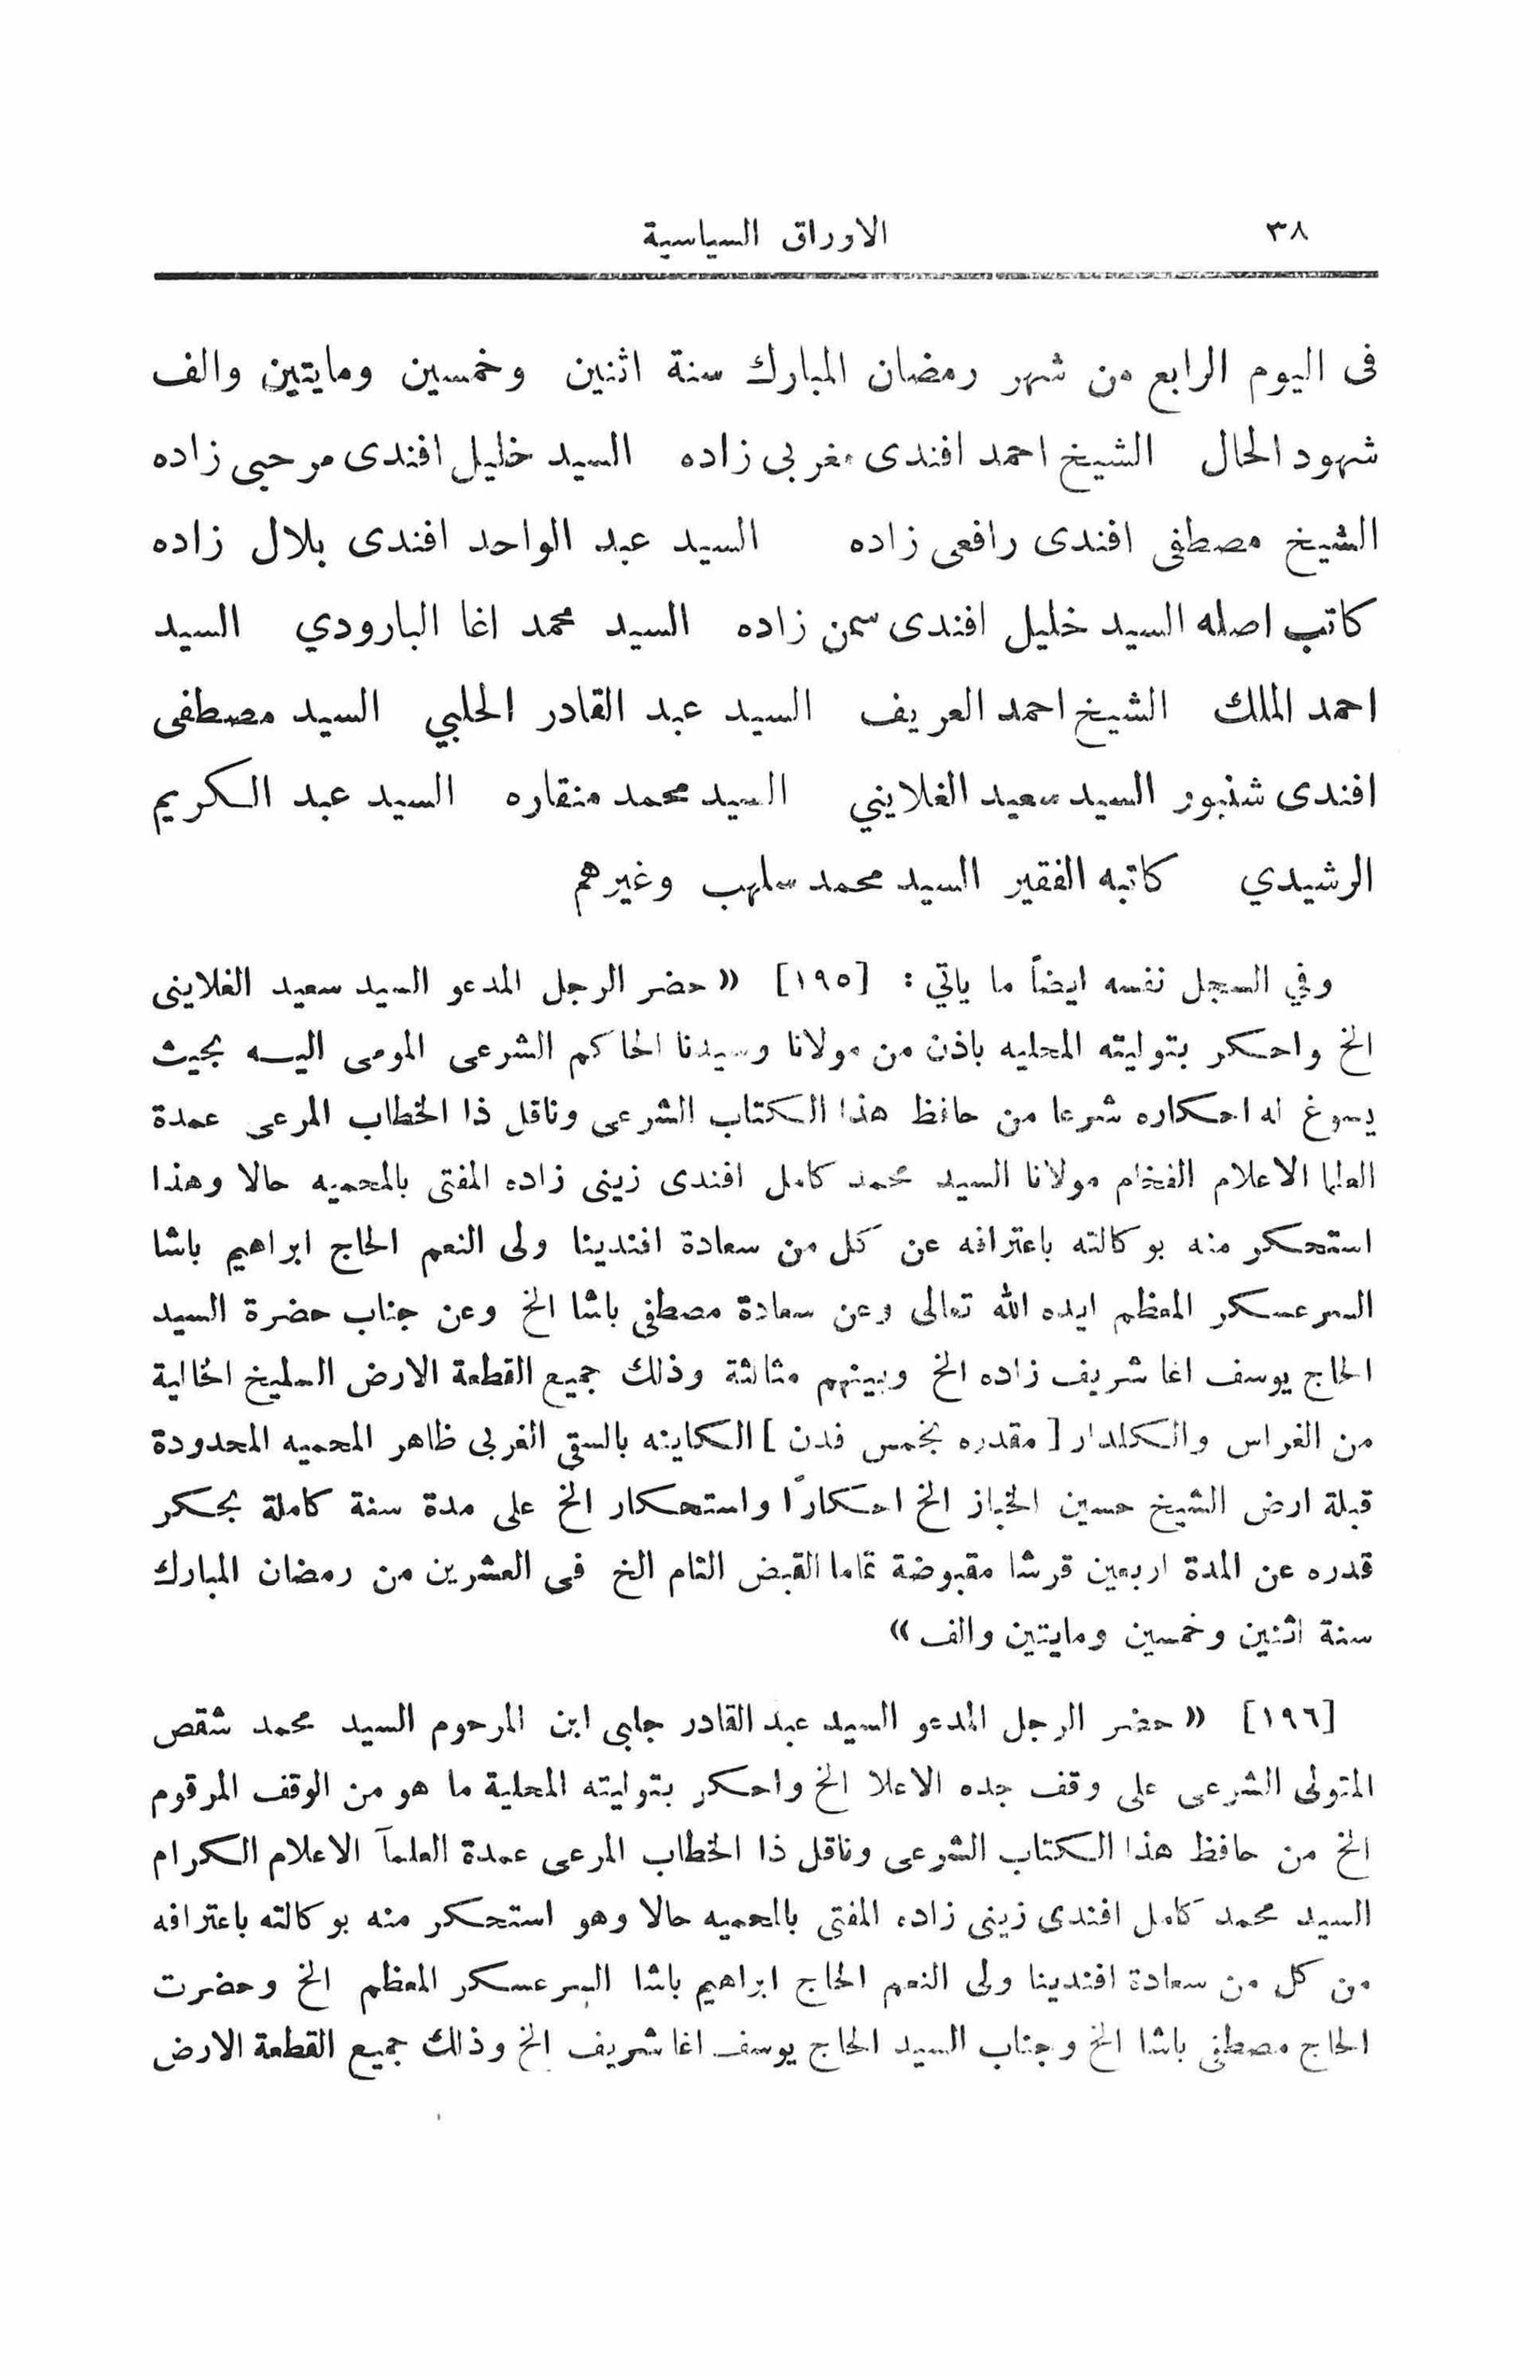 ٣٨ الاوراق السياسية
فى اليوم الرابع من شهر رمضان المبارك سنة اثنين وخمسين ومايتين والف
شهود الحال الشيخ احمد افندى مغربى زاده السيد خليل افندى مرحبى زاده
الشيخ مصطفى افندى رافعى زاده السيد عبد الواحد افندى بلال زاده
كاتب اصله السيد خليل افندى سمن زاده السيد محمد اغا البارودي السيد
احمد الملك الشيخ احمد العريف السيد عبد القادر الحلبي السيد مصطفى
افندى شنبور السيد سعيد الغلايني السيد محمد منقاره السيد عبد الكريم
الرشيدي كاتبه الفقير السيد محمد سلهب وغيرهم
وفي السجل نفسه ايضاً ما ياتي : [١٩٥] «حضر الرجل المدعو السيد سعيد الغلاينى
الخ واحكر بتوليته المحليه باذن من مولانا وسيدنا الحاكم الشرعى المومى اليه بحيث
يسوغ له احكاره شرعا من حافظ هذا الكتاب الشرعى وناقل ذا الخطاب المرعى عمدة
العلما الاعلام الفخام مولانا السيد محمد كامل افندى زينى زاده المفتى بالمحميه حالا وهذا
استحكر منه بوكالته باعترافه عن كل من سعادة افندينا ولى النعم الحاج ابراهيم باشا
السرعسكر المعظم ايده الله تعالى وعن سعادة مصطفى باشا الخ وعن جناب حضرة السيد
الحاج يوسف اغا شريف زاده الخ وبينهم مثالثة وذلك جميع القطعة الارض السليخ الخالية
من الغراس والكلدار [ مقدره بخمس فدن ] الكاينه بالسقى الغربى ظاهر المحميه المحدودة
قبلة ارض الشيخ حسين الخباز الخ احكارًا واستحكار الخ على مدة سنة كاملة بحكر
قدره عن المدة اربعين قرشا مقبوضة تماما القبض التام الخ فى العشرين من رمضان المبارك
سنة اثنين وخمسين ومايتين والف»
[١٩٦] «حضر الرجل المدعو السيد عبد القادر جلبى ابن المرحوم السيد محمد شقص
المتولى الشرعى على وقف جده الاعلا الخ واحكر بتوليته المحلية ما هو من الوقف المرقوم
الخ من حافظ هذا الكتاب الشرعى وناقل ذا الخطاب المرعى عمدة العلمآ الاعلام الكرام
السيد محمد كامل افندى زينى زاده المفتى بالمحميه حالا وهو استحكر منه بوكالته باعترافه
من كل من سعادة افندينا ولى النعم الحاج ابراهيم باشا السرعسكر المعظم الخ وحضرت
الحاج مصطفى باشا الخ وجناب السيد الحاج يوسف اغا شريف الخ وذلك جميع القطعة الارض